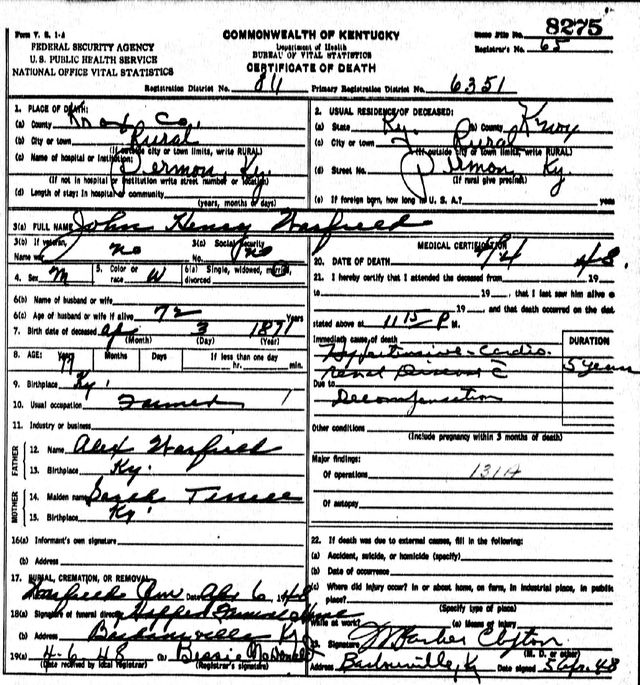 Form V. S. 1-A
FEDERAL SECURITY AGENCY
U. S. PUBLIC HEALTH SERVICE
NATIONAL OFFICE VITAL STATISTICS
COMMONWEALTH OF KENTUCKY
Department of Health
BUREAU OF VITAL STATISTICS
CERTIFICATE OF DEATH
State File No. 8275
Registrar's No. 65
Registration District No. 811 Primary Registration District No. 6351
1. PLACE OF DEATH:
(a) County Knox Co.
(b) City or town Rural
(If outside city or town limits, write RURAL)
(c) Name of hospital or institution: Permon, Ky.
(If not in hospital or institution write street number or location)
(d) Length of stay: In hospital or community
(years, months or days)
2. USUAL RESIDENCE OF DECEASED:
(a) State Ky. (b) County Knox
(c) City or town Rural
(If outside city or town limits, write RURAL)
(d) Street No. Permon, Ky
(If rural give precinct)
(e) If foreign born, how long in U. S. A.? years
3(a) FULL NAME John Henry Warfield
3(b) If veteran, Name war no 3(c) Social Security No. no
4. Sex M 5. Color or race W 6(a) Single, widowed, married, divorced
6(b) Name of husband or wife
6(c) Age of husband or wife if alive 72 Years
7. Birth date of deceased Ap 3 1871
(Month) (Day) (Year)
8. AGE: Years 77 Months Days If less than one day hr. min.
9. Birthplace Ky.
10. Usual occupation Farmer
11. Industry or business
FATHER
12. Name Alex Warfield
13. Birthplace Ky.
MOTHER
14. Maiden name Sarah
15. Birthplace Ky.
16(a) Informant's own signature
(b) Address
17. BURIAL, CREMATION, OR REMOVAL
Warfield Date Apr 6, 1948
18(a) Signature of funeral director Hopper Funeral Home
(b) Address Barbourville Ky
19(a) 4-6-48 (b) Bessie McDonald
(Date received by local registrar) (Registrar's signature)
MEDICAL CERTIFICATION
20. DATE OF DEATH 4/4 48.
21. I hereby certify that I attended the deceased from 19
to 19 , that I last saw him alive o
19 , and that death occurred on the dat
stated above at 11 15 P M.
Immediate cause of death
Hypertensive-Cardio-
renal Disease c
Due to
Decompensation
DURATION
5 years
Other conditions
(Include pregnancy within 3 months of death)
Major findings:
Of operations 131A
Of autopsy
22. If death was due to external causes, fill in the following:
(a) Accident, suicide, or homicide (specify)
(b) Date of occurrence
(c) Where did injury occur? In or about home, on farm, in industrial place, in public place?
(Specify type of place)
While at work? (e) Means of injury
23. Signature Clifton
(M. D. or other)
Address Barbourville, Ky Date signed 5 Apr 48